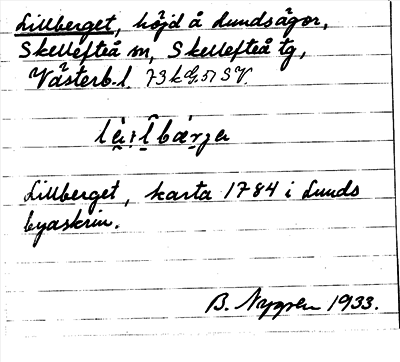 Lillberget, höjd å Lundsägor,
Skellefteå m, Skellefteå tg,
Västerb. l. 73 k G. 57 SV.
Lillberget, karta 1784 i Lunds
byaskrin.
B. Nygren 1933.